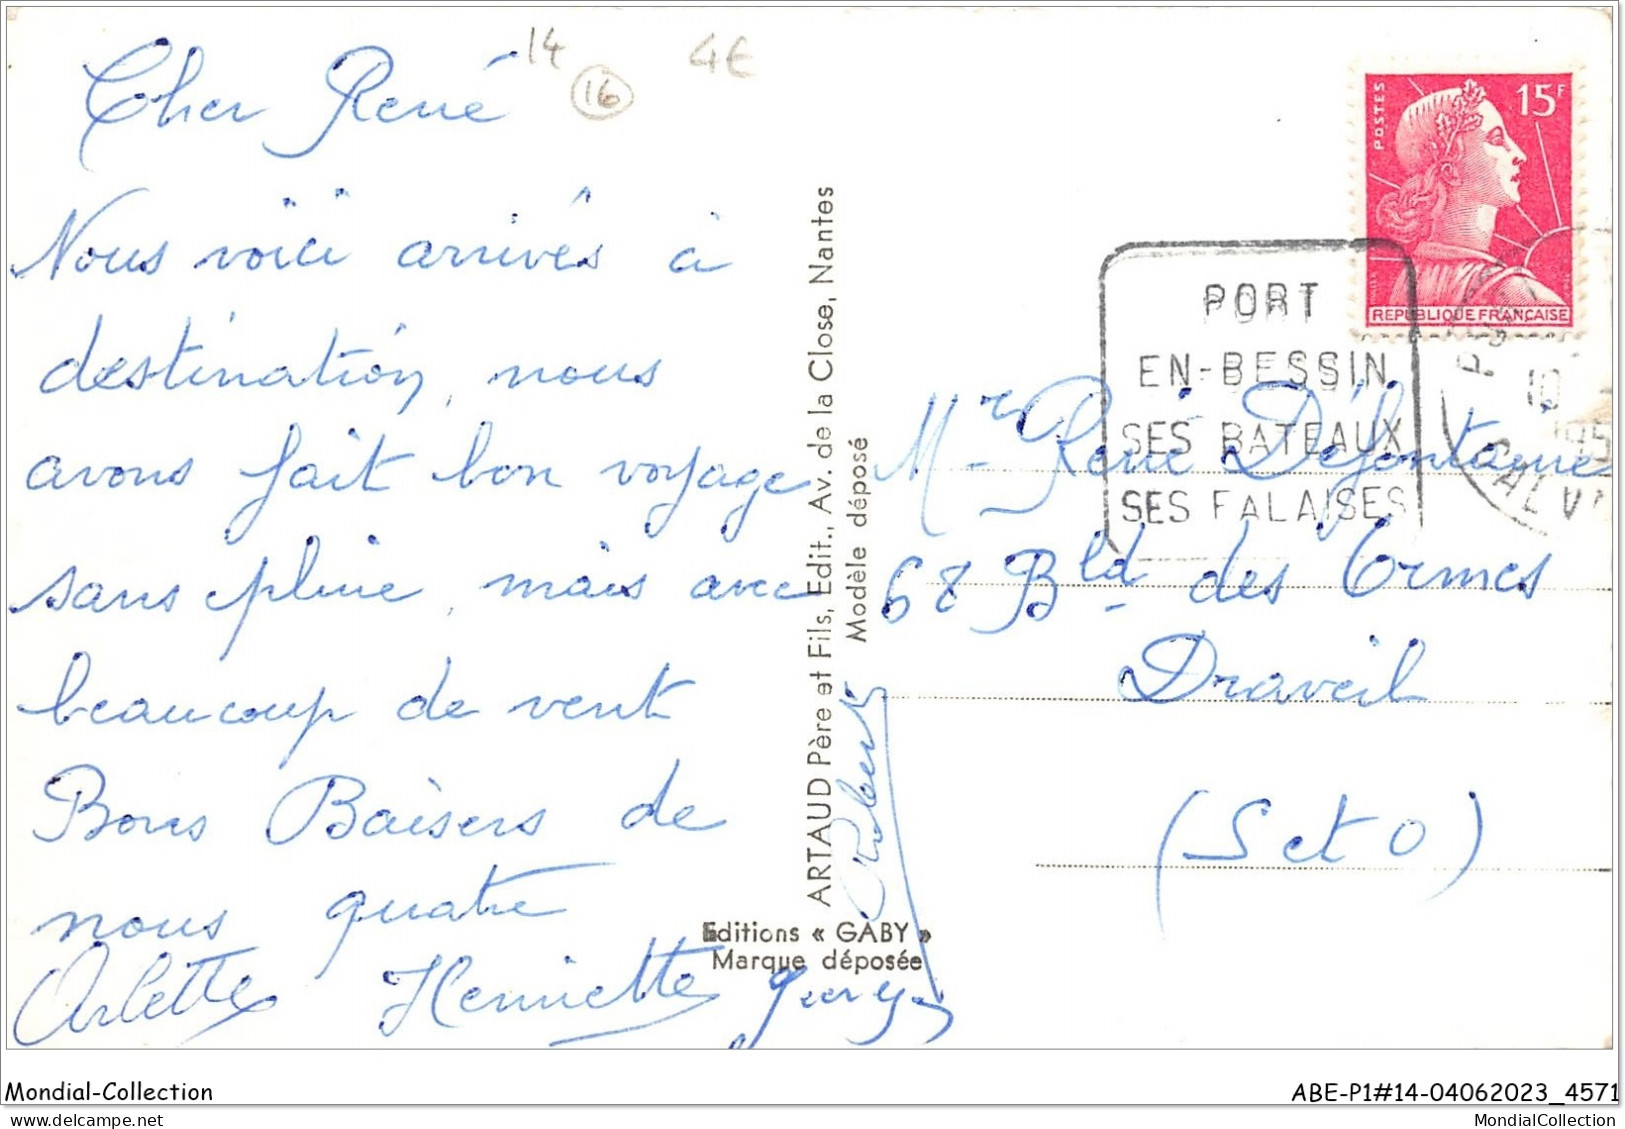 14
16
4€
Cher René
Nous voici arrivés à
destination, nous
avons fait bon voyage
sans pluie, mais avec
beaucoup de vent
Bons Baisers de
nous quatre
Arlette Henriette Georges
Robert
ARTAUD Père et Fils, Edit., Av. de la Close, Nantes
Modèle déposé
Editions « GABY »
Marque déposée
POSTES
15F
REPUBLIQUE FRANÇAISE
PORT
EN-BESSIN
SES BATEAUX
SES FALAISES
10
CALV
Mr René Défontaine
68 Bld des Ormes
Draveil
(S et O)
Mondial-Collection
ABE-P1#14-04062023_4571
MondialCollection